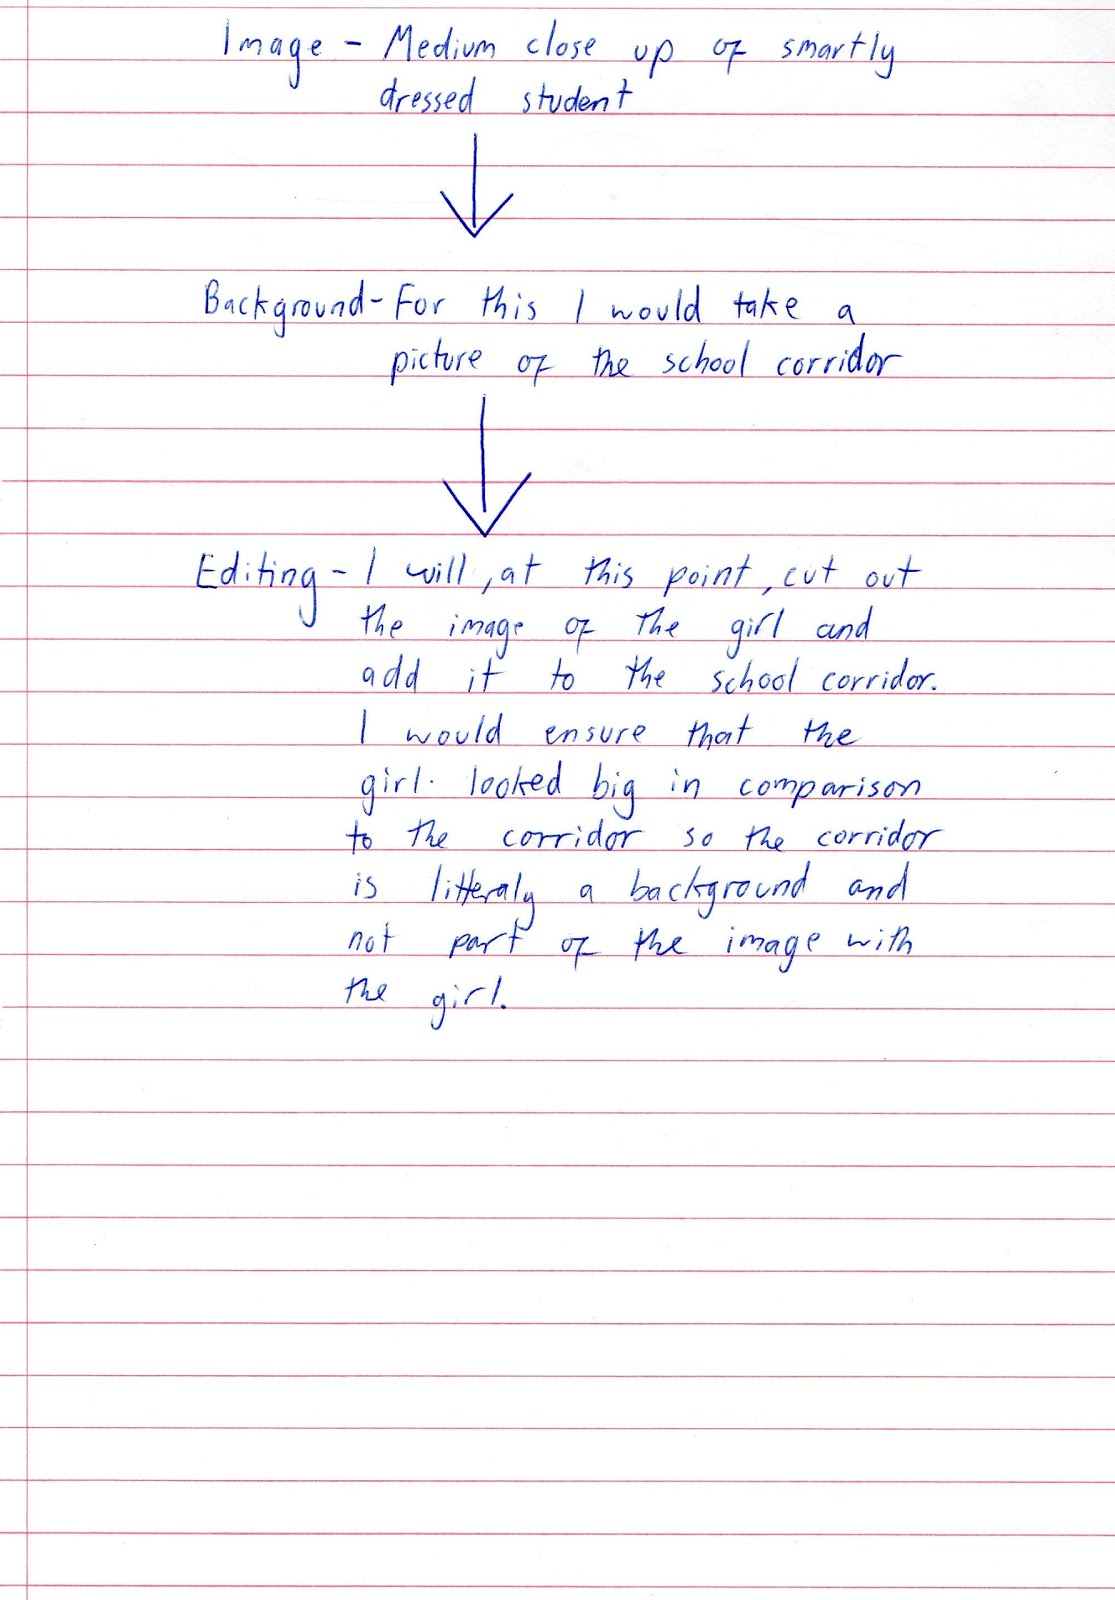 Image - Medium close up of smartly
dressed student
Background - For this I would take a
picture of the school corridor
Editing - I will, at this point, cut out
the image of the girl and
add it to the school corridor.
I would ensure that the
girl. looked big in comparison
to the corridor so the corridor
is litteraly a background and
not part of the image with
the girl.